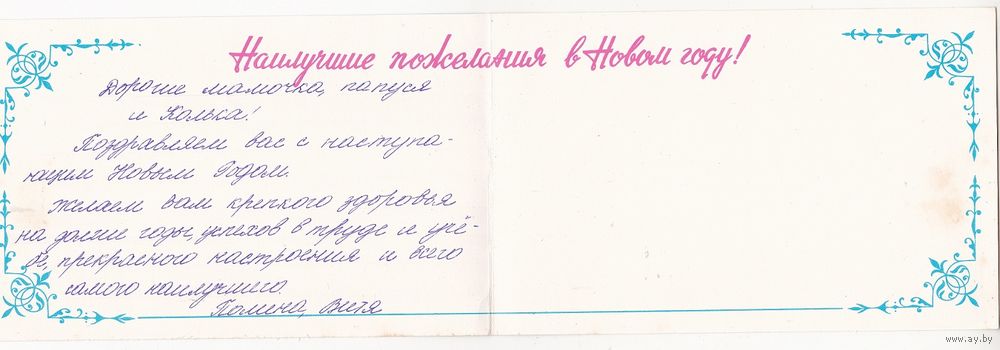 Наилучшие пожелания в Новом году!
Дорогие мамочка, папуся
и Колька!
Поздравляем вас с наступа-
ющим Новым Годом.
Желаем вам крепкого здоровья
на долгие годы, успехов в труде и учё-
бе, прекрасного настроения и всего
самого наилучшего.
Витя
www.ay.by